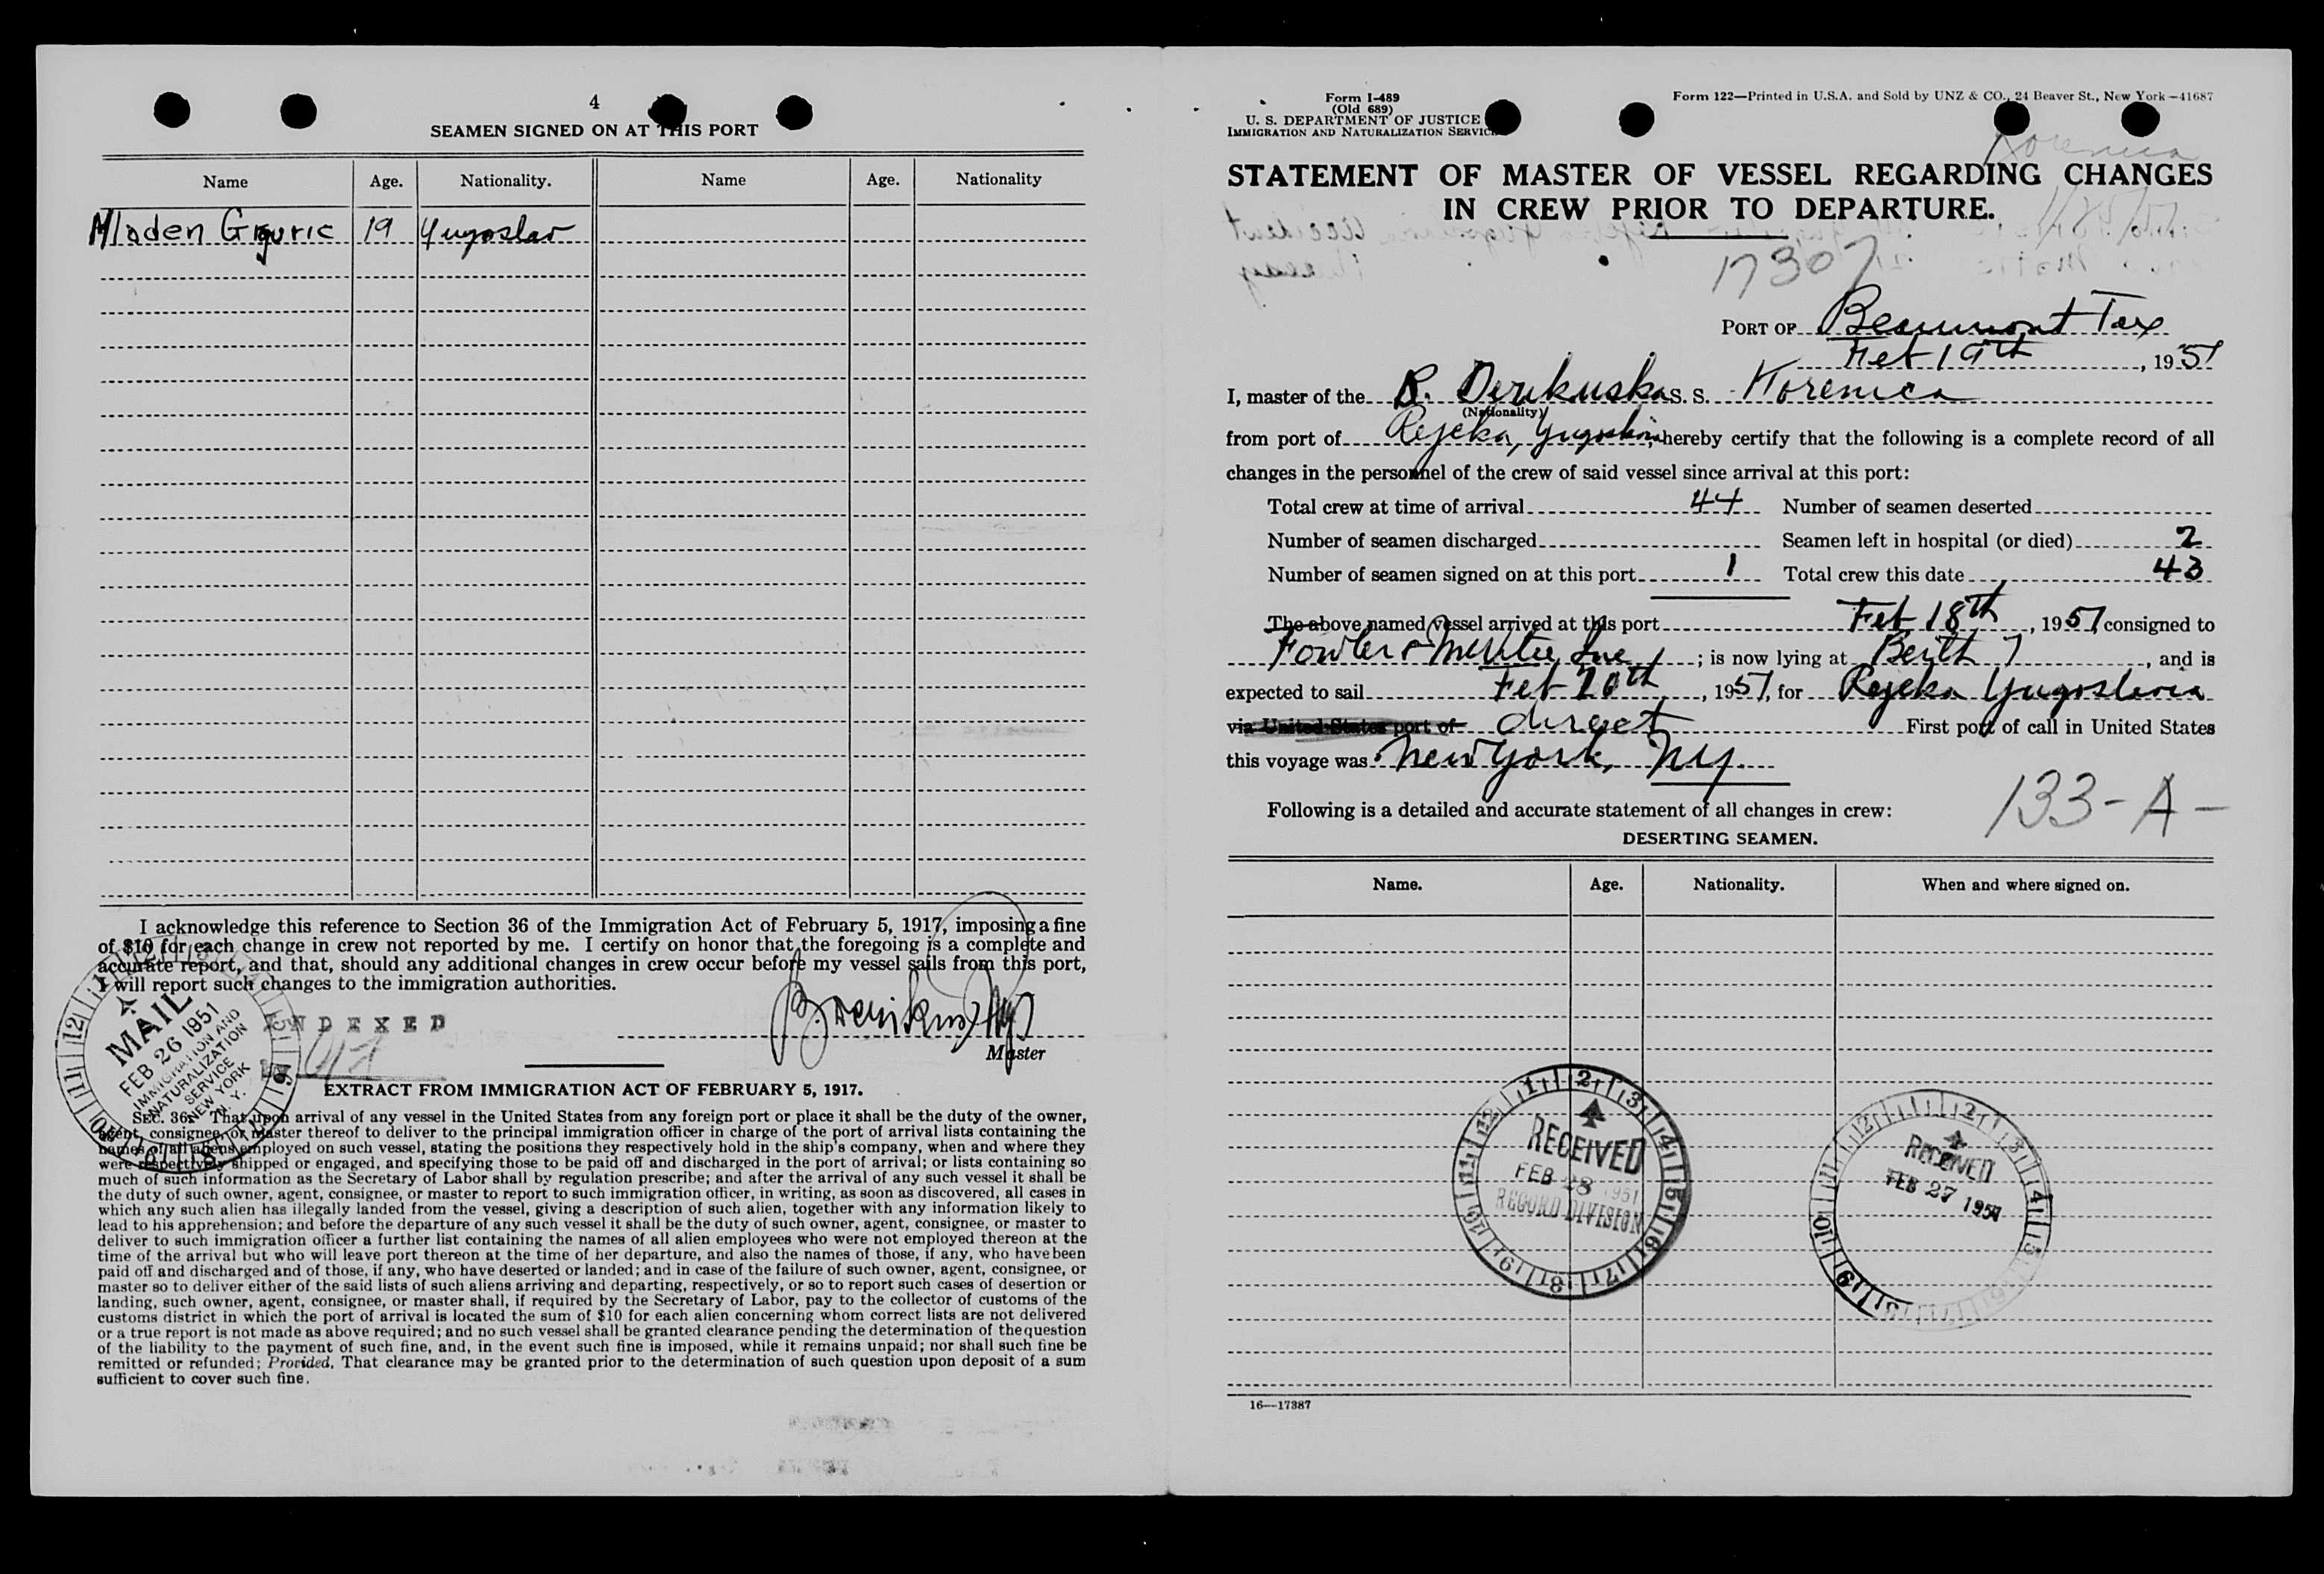 4
SEAMEN SIGNED ON AT THIS PORT
Name Age. Nationality. Name Age. Nationality
Mladen Giguric 19 Yugoslav
I acknowledge this reference to Section 36 of the Immigration Act of February 5, 1917, imposing a fine
of $10 for each change in crew not reported by me. I certify on honor that the foregoing is a complete and
accurate report, and that, should any additional changes in crew occur before my vessel sails from this port,
I will report such changes to the immigration authorities.
MAIL
FEB 26 1951
IMMIGRATION AND
NATURALIZATION
SERVICE
NEW YORK
N. Y.
INDEXED
Master
EXTRACT FROM IMMIGRATION ACT OF FEBRUARY 5, 1917.
SEC. 36. That upon arrival of any vessel in the United States from any foreign port or place it shall be the duty of the owner,
agent, consignee, or master thereof to deliver to the principal immigration officer in charge of the port of arrival lists containing the
names of all aliens employed on such vessel, stating the positions they respectively hold in the ship's company, when and where they
were respectively shipped or engaged, and specifying those to be paid off and discharged in the port of arrival; or lists containing so
much of such information as the Secretary of Labor shall by regulation prescribe; and after the arrival of any such vessel it shall be
the duty of such owner, agent, consignee, or master to report to such immigration officer, in writing, as soon as discovered, all cases in
which any such alien has illegally landed from the vessel, giving a description of such alien, together with any information likely to
lead to his apprehension; and before the departure of any such vessel it shall be the duty of such owner, agent, consignee, or master to
deliver to such immigration officer a further list containing the names of all alien employees who were not employed thereon at the
time of the arrival but who will leave port thereon at the time of her departure, and also the names of those, if any, who have been
paid off and discharged and of those, if any, who have deserted or landed; and in case of the failure of such owner, agent, consignee, or
master so to deliver either of the said lists of such aliens arriving and departing, respectively, or so to report such cases of desertion or
landing, such owner, agent, consignee, or master shall, if required by the Secretary of Labor, pay to the collector of customs of the
customs district in which the port of arrival is located the sum of $10 for each alien concerning whom correct lists are not delivered
or a true report is not made as above required; and no such vessel shall be granted clearance pending the determination of the question
of the liability to the payment of such fine, and, in the event such fine is imposed, while it remains unpaid; nor shall such fine be
remitted or refunded; Provided, That clearance may be granted prior to the determination of such question upon deposit of a sum
sufficient to cover such fine.
Form I-489
(Old 689)
U. S. DEPARTMENT OF JUSTICE
IMMIGRATION AND NATURALIZATION SERVICE
Form 122—Printed in U.S.A. and Sold by UNZ & CO., 24 Beaver St., New York—41687
Korenica
STATEMENT OF MASTER OF VESSEL REGARDING CHANGES
IN CREW PRIOR TO DEPARTURE.
17307
PORT OF Beaumont Tex
Feb 19th, 1951
I, master of the B. Derikuska S. S. Korenica
(Nationality)
from port of Rejeka, Yugoslavia, hereby certify that the following is a complete record of all
changes in the personnel of the crew of said vessel since arrival at this port:
Total crew at time of arrival 44 Number of seamen deserted
Number of seamen discharged Seamen left in hospital (or died) 2
Number of seamen signed on at this port 1 Total crew this date 43
The above named vessel arrived at this port Feb 18th, 1951, consigned to
Fowler & McVitie Inc; is now lying at Berth 7, and is
expected to sail Feb 20th, 1951, for Rejeka Yugoslavia
via United States port of direct First port of call in United States
this voyage was New York, NY.
Following is a detailed and accurate statement of all changes in crew:
133-A-
DESERTING SEAMEN.
Name. Age. Nationality. When and where signed on.
RECEIVED
FEB 28 1951
RECORD DIVISION
RECEIVED
FEB 27 1951
16—17387